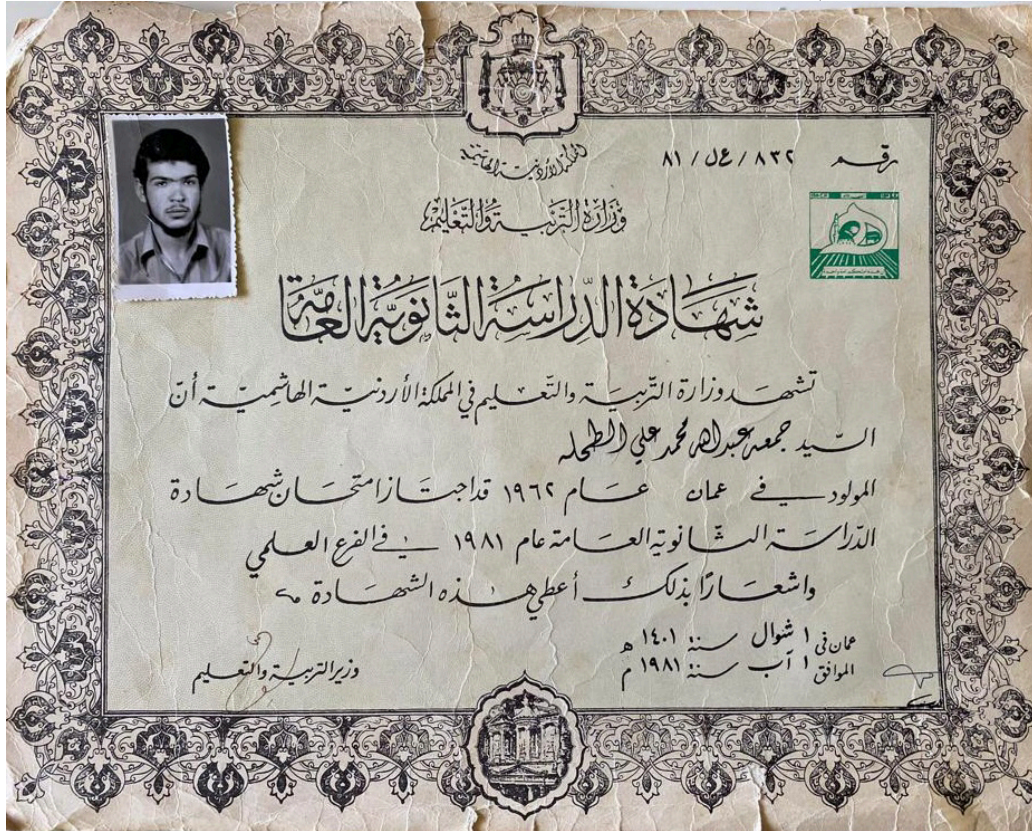 المملكة الأردنية الهاشمية
رقم ٨٣٢ / ع ل / ٨١
وزارة التربية والتعليم
شهادة الدراسة الثانوية العامة
تشهد وزارة التربية والتعليم في المملكة الأردنية الهاشمية أنّ
السيّد جمعه عبدالله محمد علي الطحله
المولود في عمان عام ١٩٦٢ قد اجتاز امتحان شهادة
الدّراسة الثّانوية العامة عام ١٩٨١ في الفرع العلمي
واشعارًا بذلك أعطي هذه الشهادة
عمان في ١ شوال سنة ١٤٠١ هـ
الموافق ١ آب سنة ١٩٨١ م
وزير التربية والتعليم